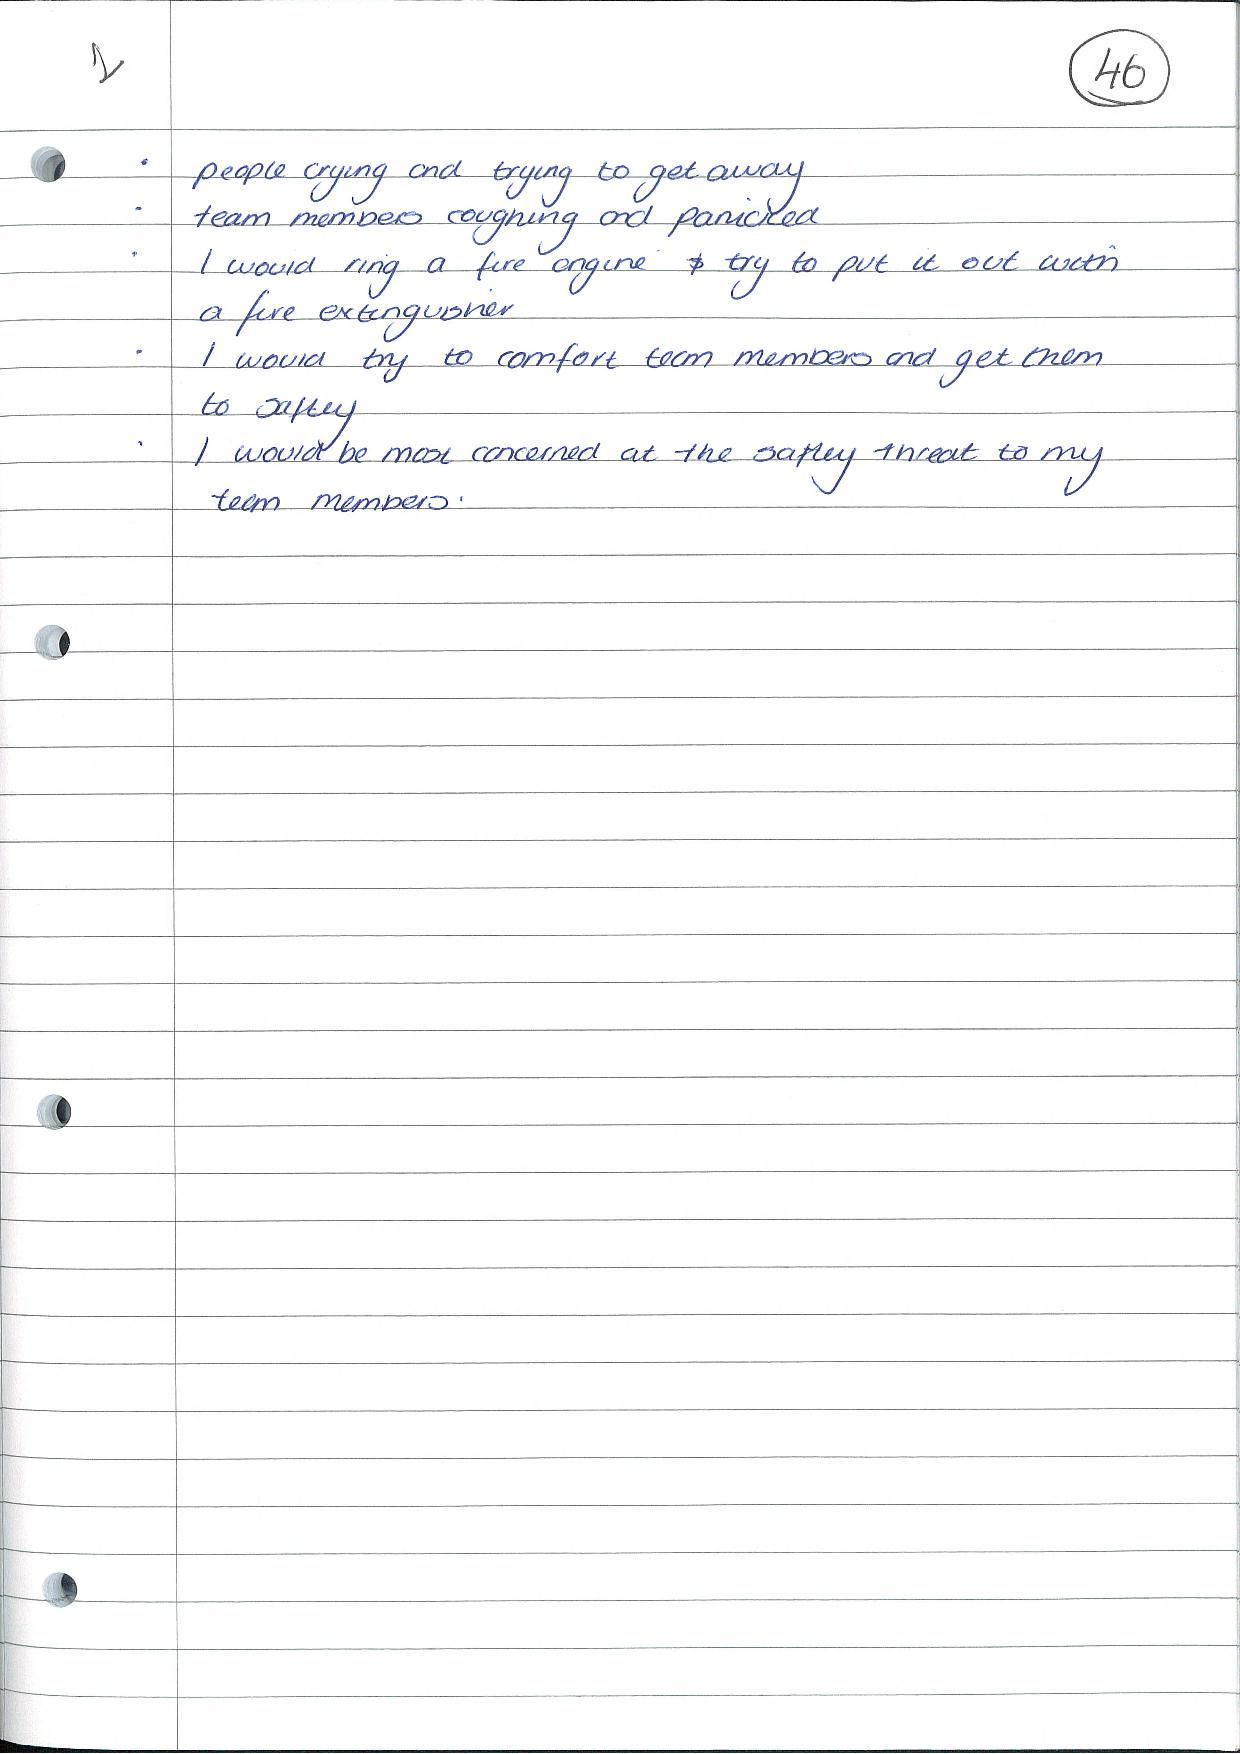 1
46
• people crying and trying to get away
• team members coughing and panicked
• I would ring a fire engine & try to put it out with
a fire extinguisher
• I would try to comfort team members and get them
to saftey
• I would be most concerned at the saftey threat to my
team members.